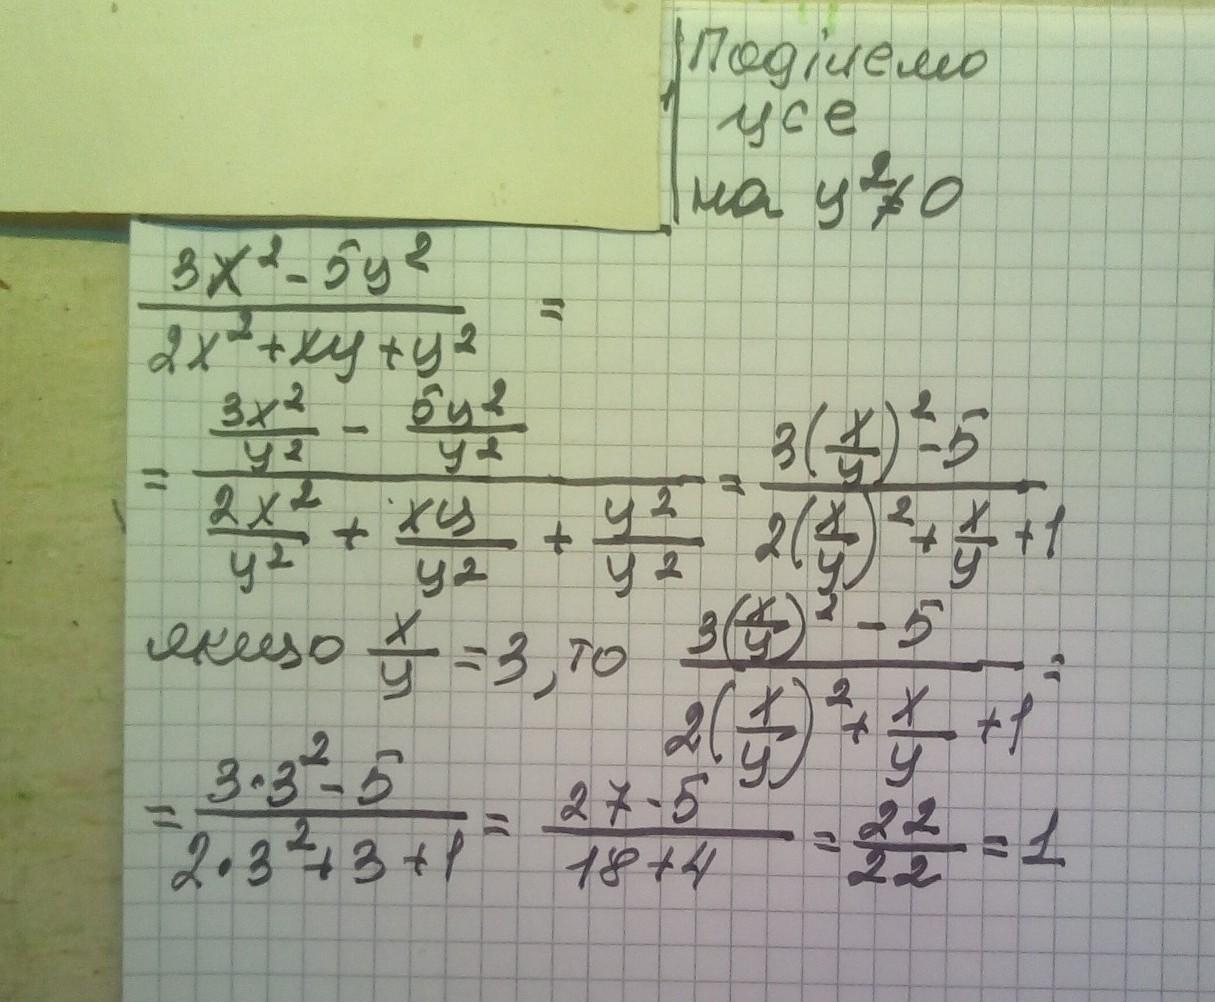 Поділемо
усе
на y² ≠ 0
(3x² - 5y²)/(2x² + xy + y²) =
= (3x²/y² - 5y²/y²)/(2x²/y² + xy/y² + y²/y²) = (3(x/y)² - 5)/(2(x/y)² + x/y + 1)
якщо x/y = 3, то (3(x/y)² - 5)/(2(x/y)² + x/y + 1) =
= (3·3² - 5)/(2·3² + 3 + 1) = (27 - 5)/(18 + 4) = 22/22 = 1